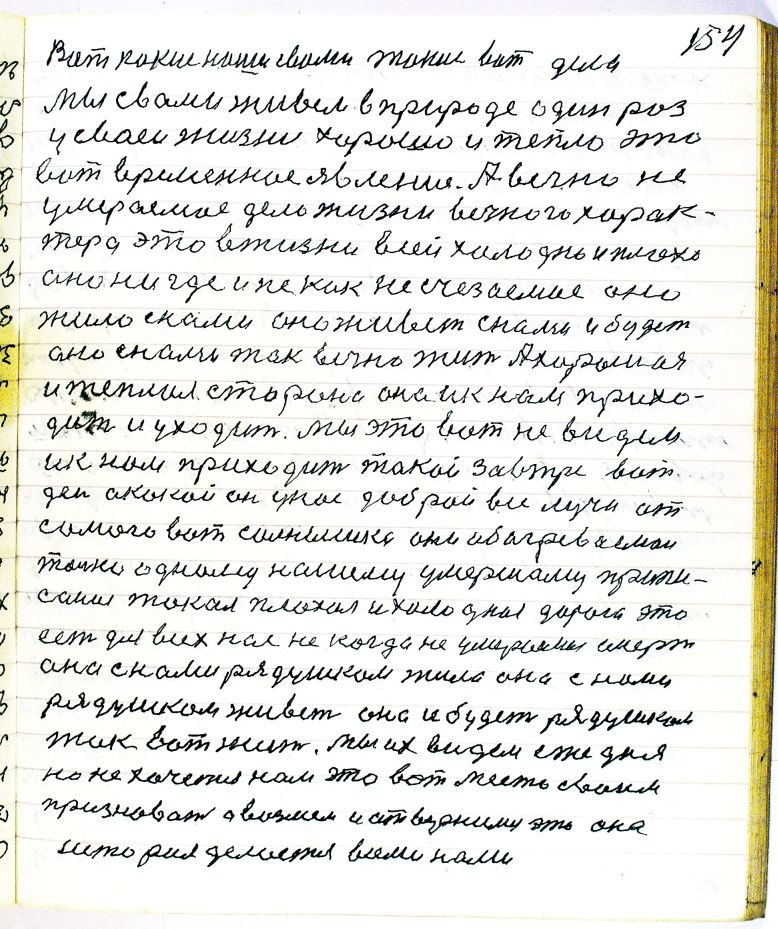 154
Вот какие наши свами такие вот дела
Мы свами живем в природе один роз
у сваей жизни хорошо и тепло это
вот временное явление. А вечно не
умераемое дело жизни вечного харак-
тера это в жизни всей холодно и плохо
оно ни где и не как не счезаемое оно
жило снами оно живет снами и будет
оно снами так вечно жит А хорошая
и теплая сторона она ик нам прихо-
дит и уходит. Мы это вот не видем
ик нам приходит такой завтре вот
ден ококой он унас доброй все лучи от
самого вот солнышка они обагреваемаи
точно одному нашему умершаму припи-
сана такая плохая и холодная дорога это
ест для всех нас не когда не умераемая смерт
она снами рядушком жила она с нами
рядушком живет она и будет рядушком
так вот жит. Мы их видем еже дня
но не хочется нам это вот место своим
признават а возмем и отвернимся это она
история делается всеми нами